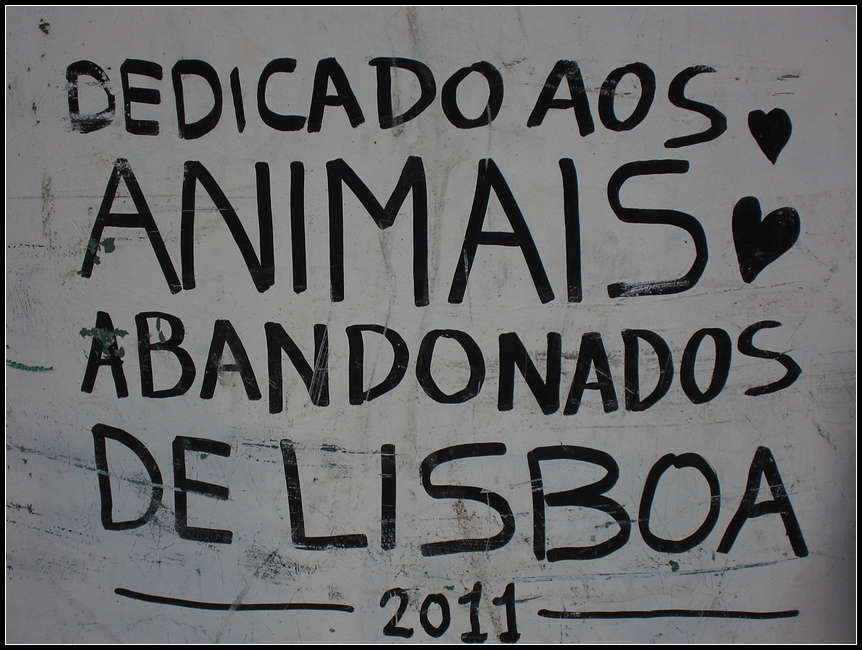 DEDICADO AOS
ANIMAIS
ABANDONADOS
DE LISBOA
2011